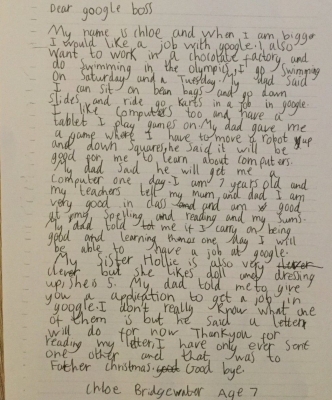 Dear google boss
My name is Chloe and when I am bigger
I would like a job with google. I also
want to work in a chocolate factory and
do swimming in the olympics. I go swimming
on Saturday and a Tuesday. My dad said
I can sit on bean bags and go down
slides and ride go karts in a job in google.
I like computers too and have a
tablet I play games on. My dad gave me
a game where I have to move a robot up
and down squares, he said it will be
good for me to learn about computers.
My dad said he will get me a
computer one day. I am 7 years old and
my teachers tell my mum and dad I am
very good in class and am good
at my spelling and reading and my sums.
My dad told me if I carry on being
good and learning then one day I will
be able to have a job at google.
My sister Hollie is also very
clever but she likes dolls and dressing
up, she is 5. My dad told me to give
you a application to get a job in
google. I don't really know what one
of them is but he said a letter
will do for now. Thankyou for
reading my letter, I have only ever sent
one other and that was to
Father christmas. Good bye.
Chloe Bridgewater Age 7